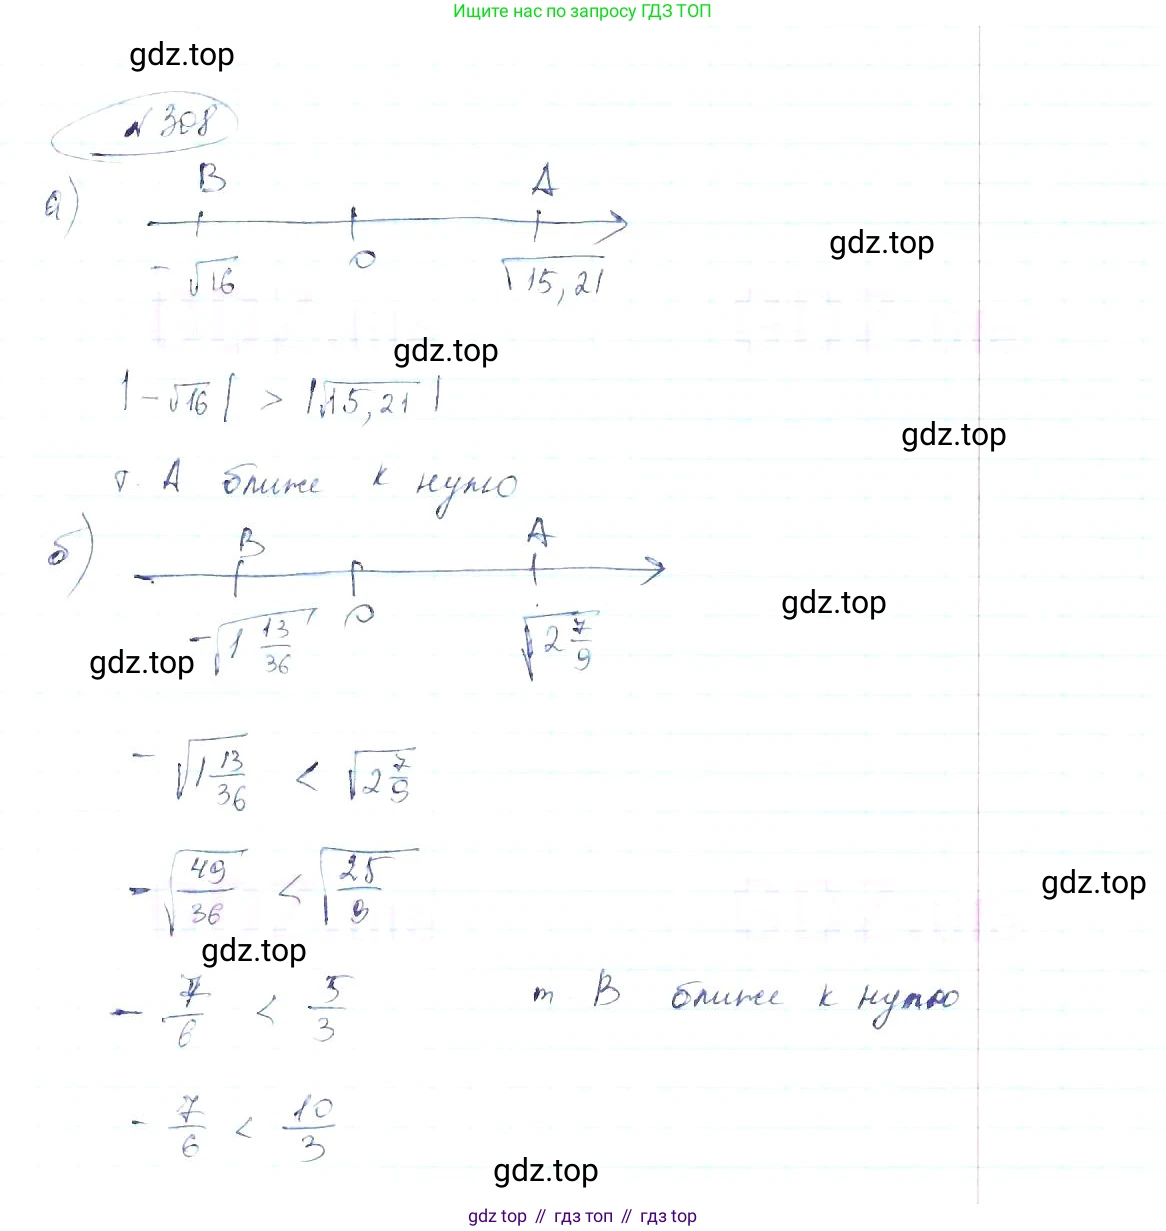 Ищите нас по запросу ГДЗ ТОП
gdz.top
№ 308
а)
B A
gdz.top
-√16 0 √15,21
gdz.top
|-√16| > |√15,21|
gdz.top
т. A ближе к нулю
б)
B A
gdz.top
-√1 13/36 0 √2 7/9
gdz.top
-√1 13/36 < √2 7/9
-√49/36 < √25/9
gdz.top
gdz.top
-7/6 < 5/3 т B ближе к нулю
-7/6 < 10/3
gdz.top
gdz top // гдз топ // gdz top